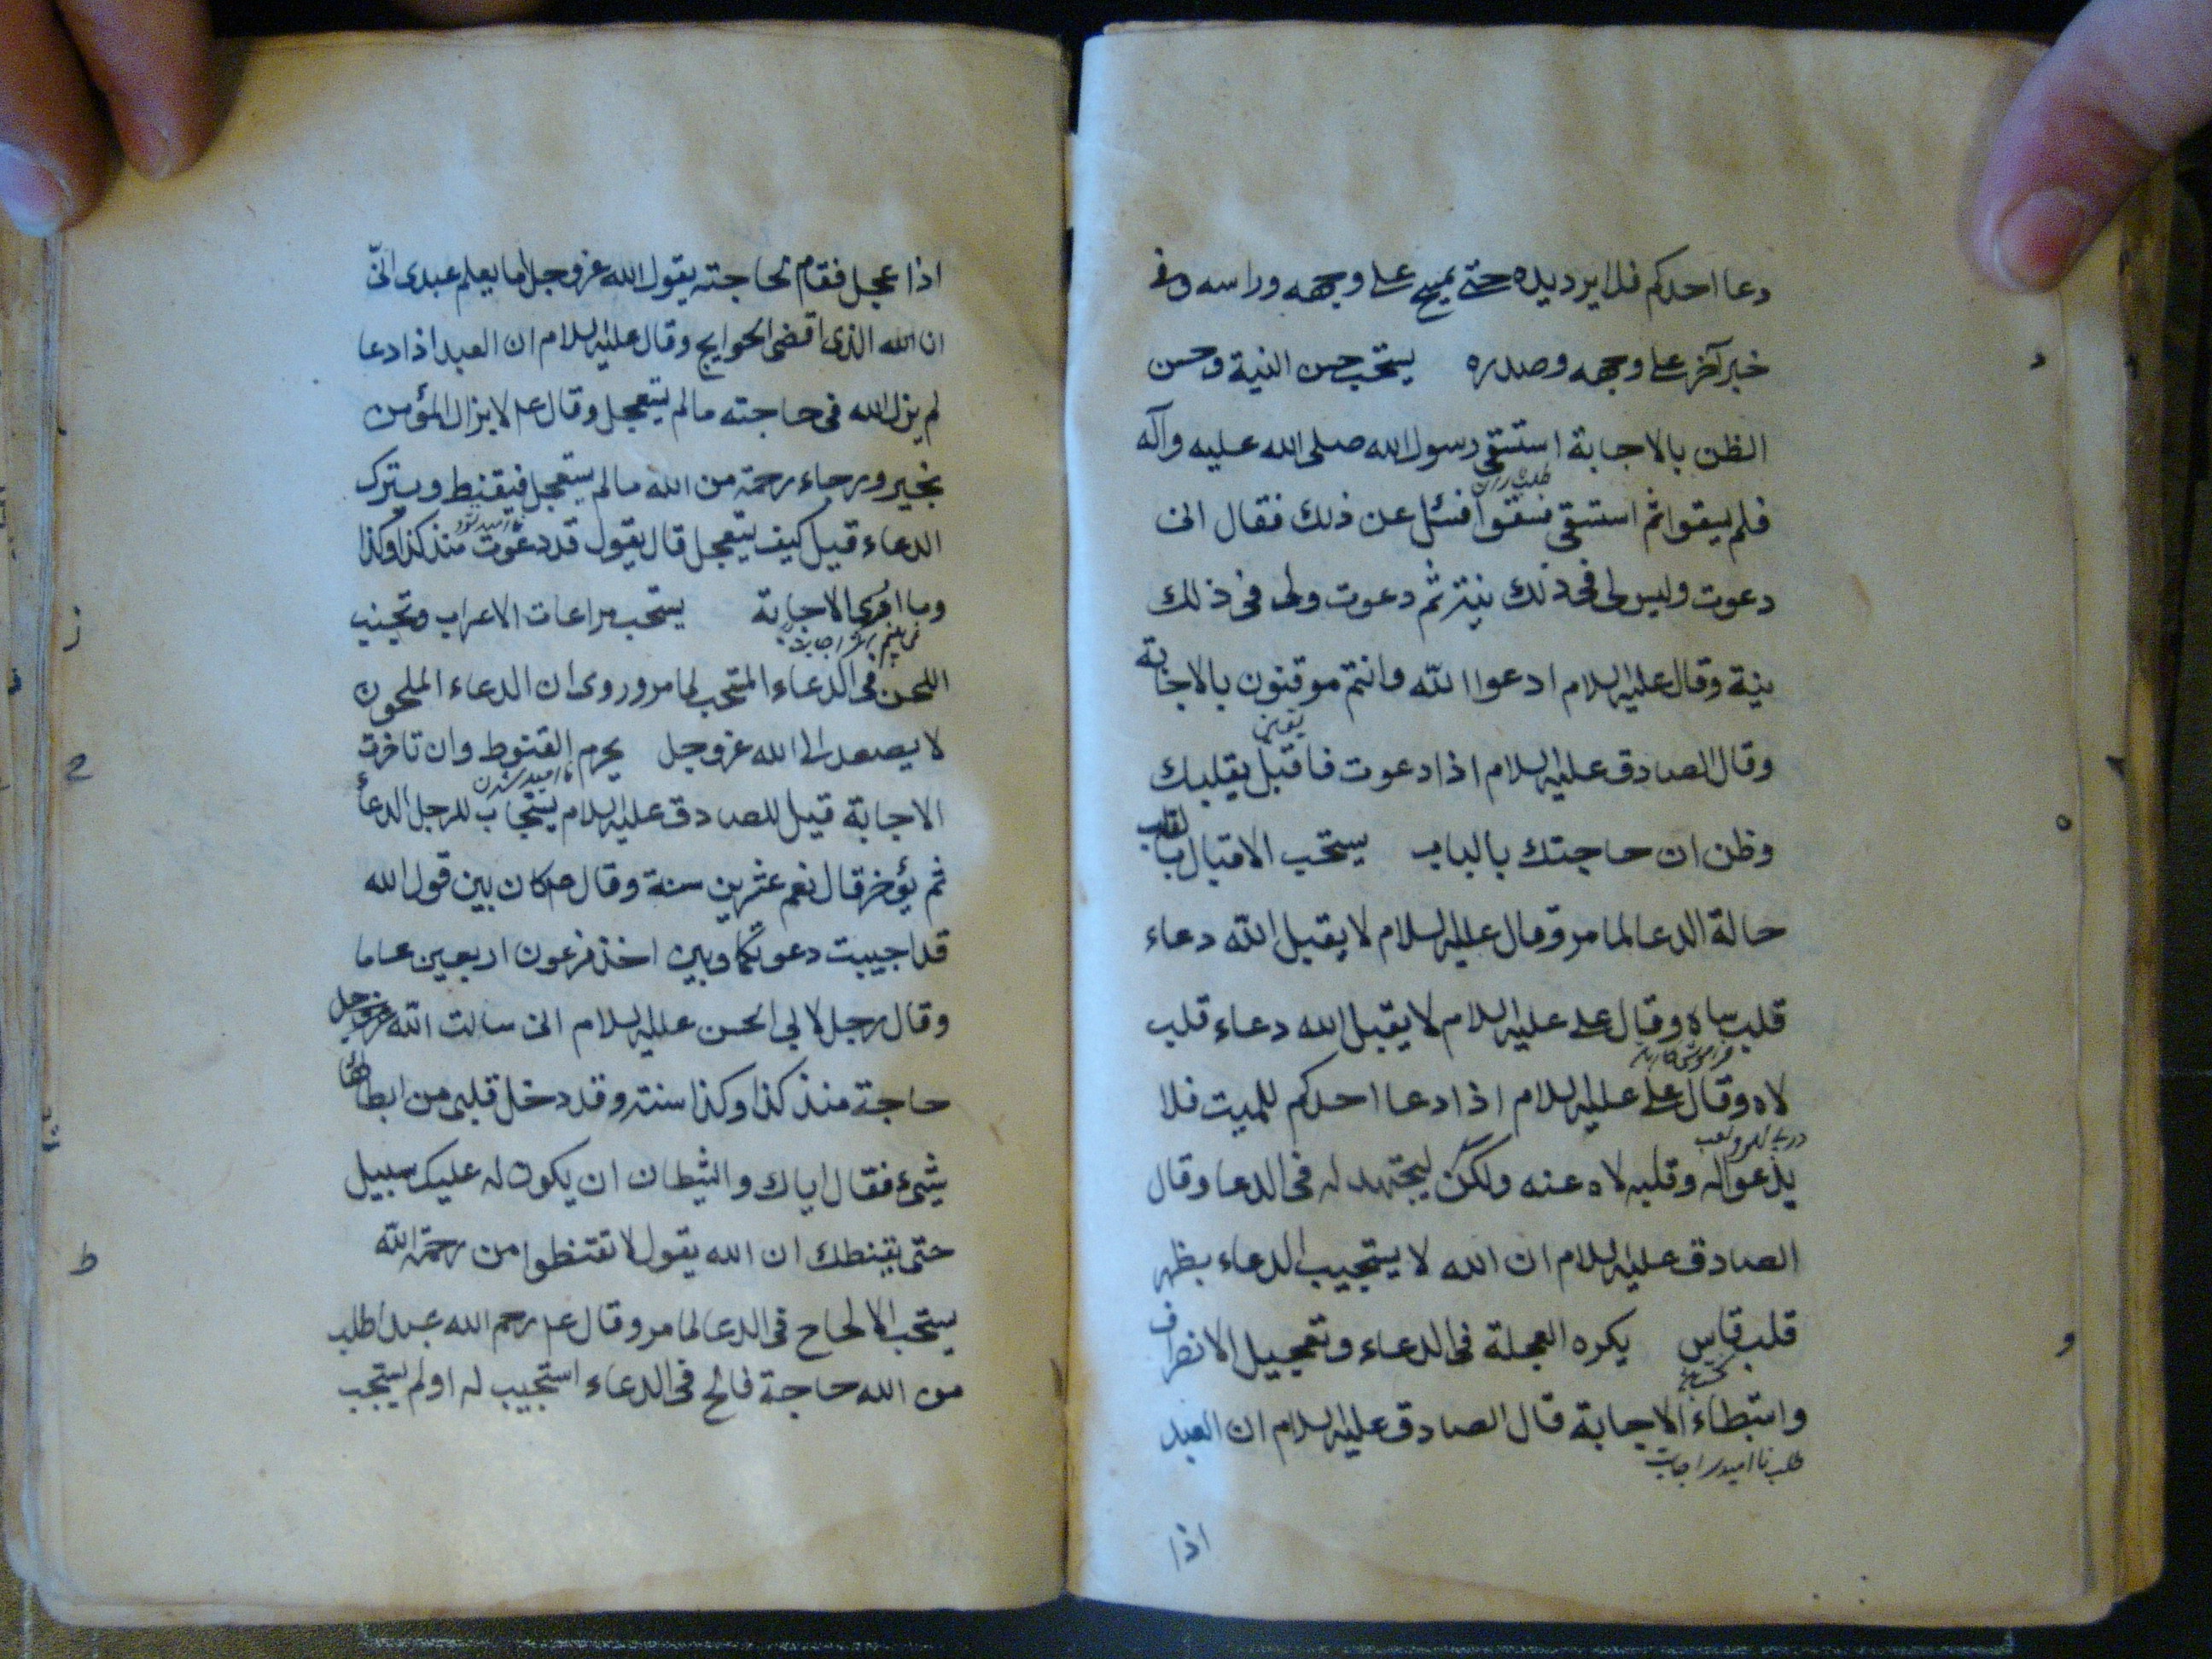 دعا احدكم فلا يرد يده حتى يمسح على وجهه وراسه وفى
د
خبر آخر على وجهه وصدره يستحب حسن النية وحسن
الظن بالاجابة استسقى رسول الله صلى الله عليه وآله
فلم يسقوا ثم استسقى فسقوا فسئل عن ذلك فقال انى
دعوت وليس لى فى ذلك نية ثم دعوت ولى فى ذلك
نية وقال عليه السلام ادعوا الله وانتم موقنون بالاجابة
يقين
وقال الصادق عليه السلام اذا دعوت فاقبل بقلبك
ه
وظن ان حاجتك بالباب يستحب الاقبال بالقلب
حالة الدعا لما مر وقال عليه السلام لا يقبل الله دعاء
قلب ساه وقال على عليه السلام لا يقبل الله دعاء قلب
لاه وقال على عليه السلام اذا دعا احدكم للميت فلا
يدعو له وقلبه لاه عنه ولكن ليجتهد له فى الدعا وقال
الصادق عليه السلام ان الله لا يستجيب الدعاء بظهر
و
قلب قاس يكره العجلة فى الدعاء وتعجيل الانصراف
واستبطاء الاجابة قال الصادق عليه السلام ان العبد
طلب نا اميد اجابت
اذا
اذا عجل فقام لحاجته يقول الله عز وجل اما يعلم عبدى انّى
ان الله الذى اقضى الحوايج وقال عليه السلام ان العبد اذا دعا
لم يزل الله فى حاجته ما لم يستعجل وقال ع لا يزال المؤمن
بخير ورجاء رحمة من الله ما لم يستعجل فيقنط ويترك
الدعاء قيل كيف يستعجل قال يقول قد دعوت منذ كذا وكذا
ز
وما ارى الاجابة يستحب مراعات الاعراب وتجنب
اللحن فى الدعاء المستحب لما مر وروى ان الدعاء الملحون
ح
لا يصعد الى الله عز وجل يحرم القنوط وان تاخرت
نا اميد شدن
الاجابة قيل للصادق عليه السلام يستجاب للرجل الدعاء
ثم يؤخر قال نعم عشرين سنة وقال ع كان بين قول الله
قد اجيبت دعوتكما وبين اخذ فرعون اربعين عاما
وقال رجل لابى الحسن عليه السلام انى سالت الله عز وجل
حاجة منذ كذا وكذا سنة وقد دخل قلبى من ابطائها
شيئ فقال اياك والشيطان ان يكون له عليك سبيل
ط
حتى يقنطك ان الله يقول لا تقنطوا من رحمة الله
يستحب الالحاح فى الدعا لما مر وقال ع رحم الله عبدا طلب
من الله حاجة فالح فى الدعاء استجيب له او لم يستجب